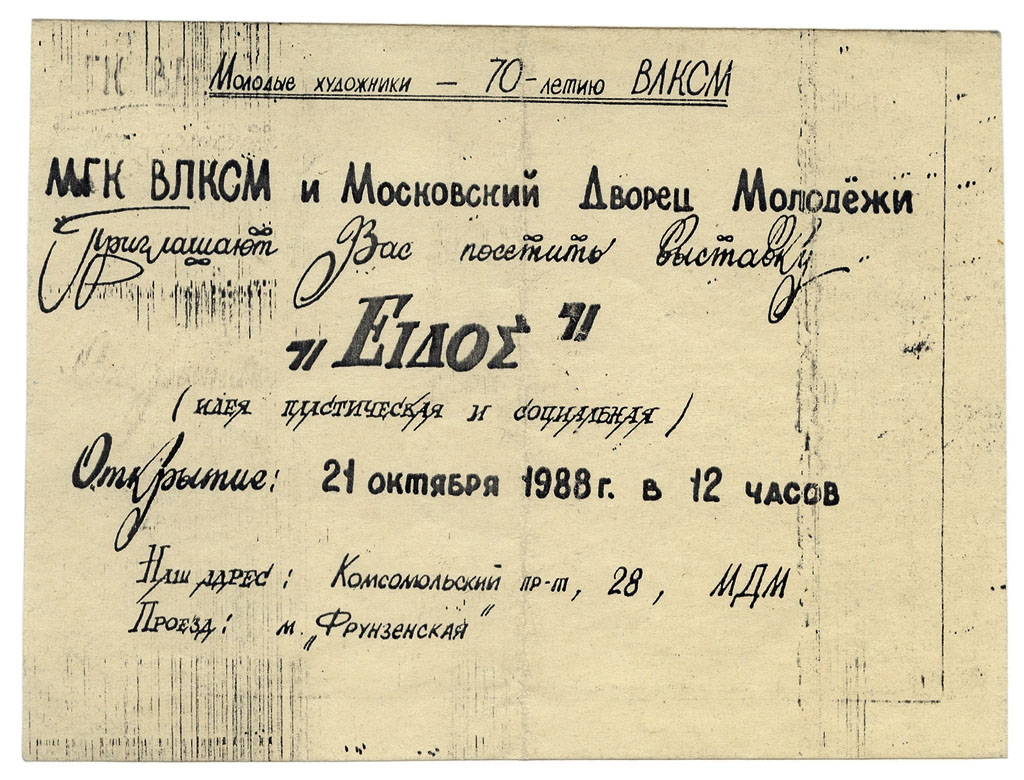 Молодые художники – 70-летию ВЛКСМ
МГК ВЛКСМ и Московский Дворец Молодёжи
Приглашают Вас посетить выставку
"ΕΙΔΟΣ"
(идея пластическая и социальная)
Открытие: 21 октября 1988 г. в 12 часов
Наш адрес: Комсомольский пр-т, 28, МДМ
Проезд: м. „Фрунзенская"